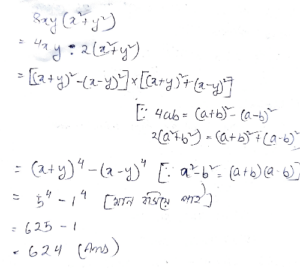 8xy(x²+y²)
= 4xy · 2(x²+y²)
= [(x+y)²-(x-y)²]×[(x+y)²+(x-y)²]
[∵ 4ab = (a+b)²-(a-b)²
2(a²+b²) = (a+b)²+(a-b)²
= (x+y)⁴-(x-y)⁴ [∵ a²-b² = (a+b)(a-b)]
= 5⁴-1⁴ [মান বসিয়ে পাই]
= 625-1
= 624 (Ans)